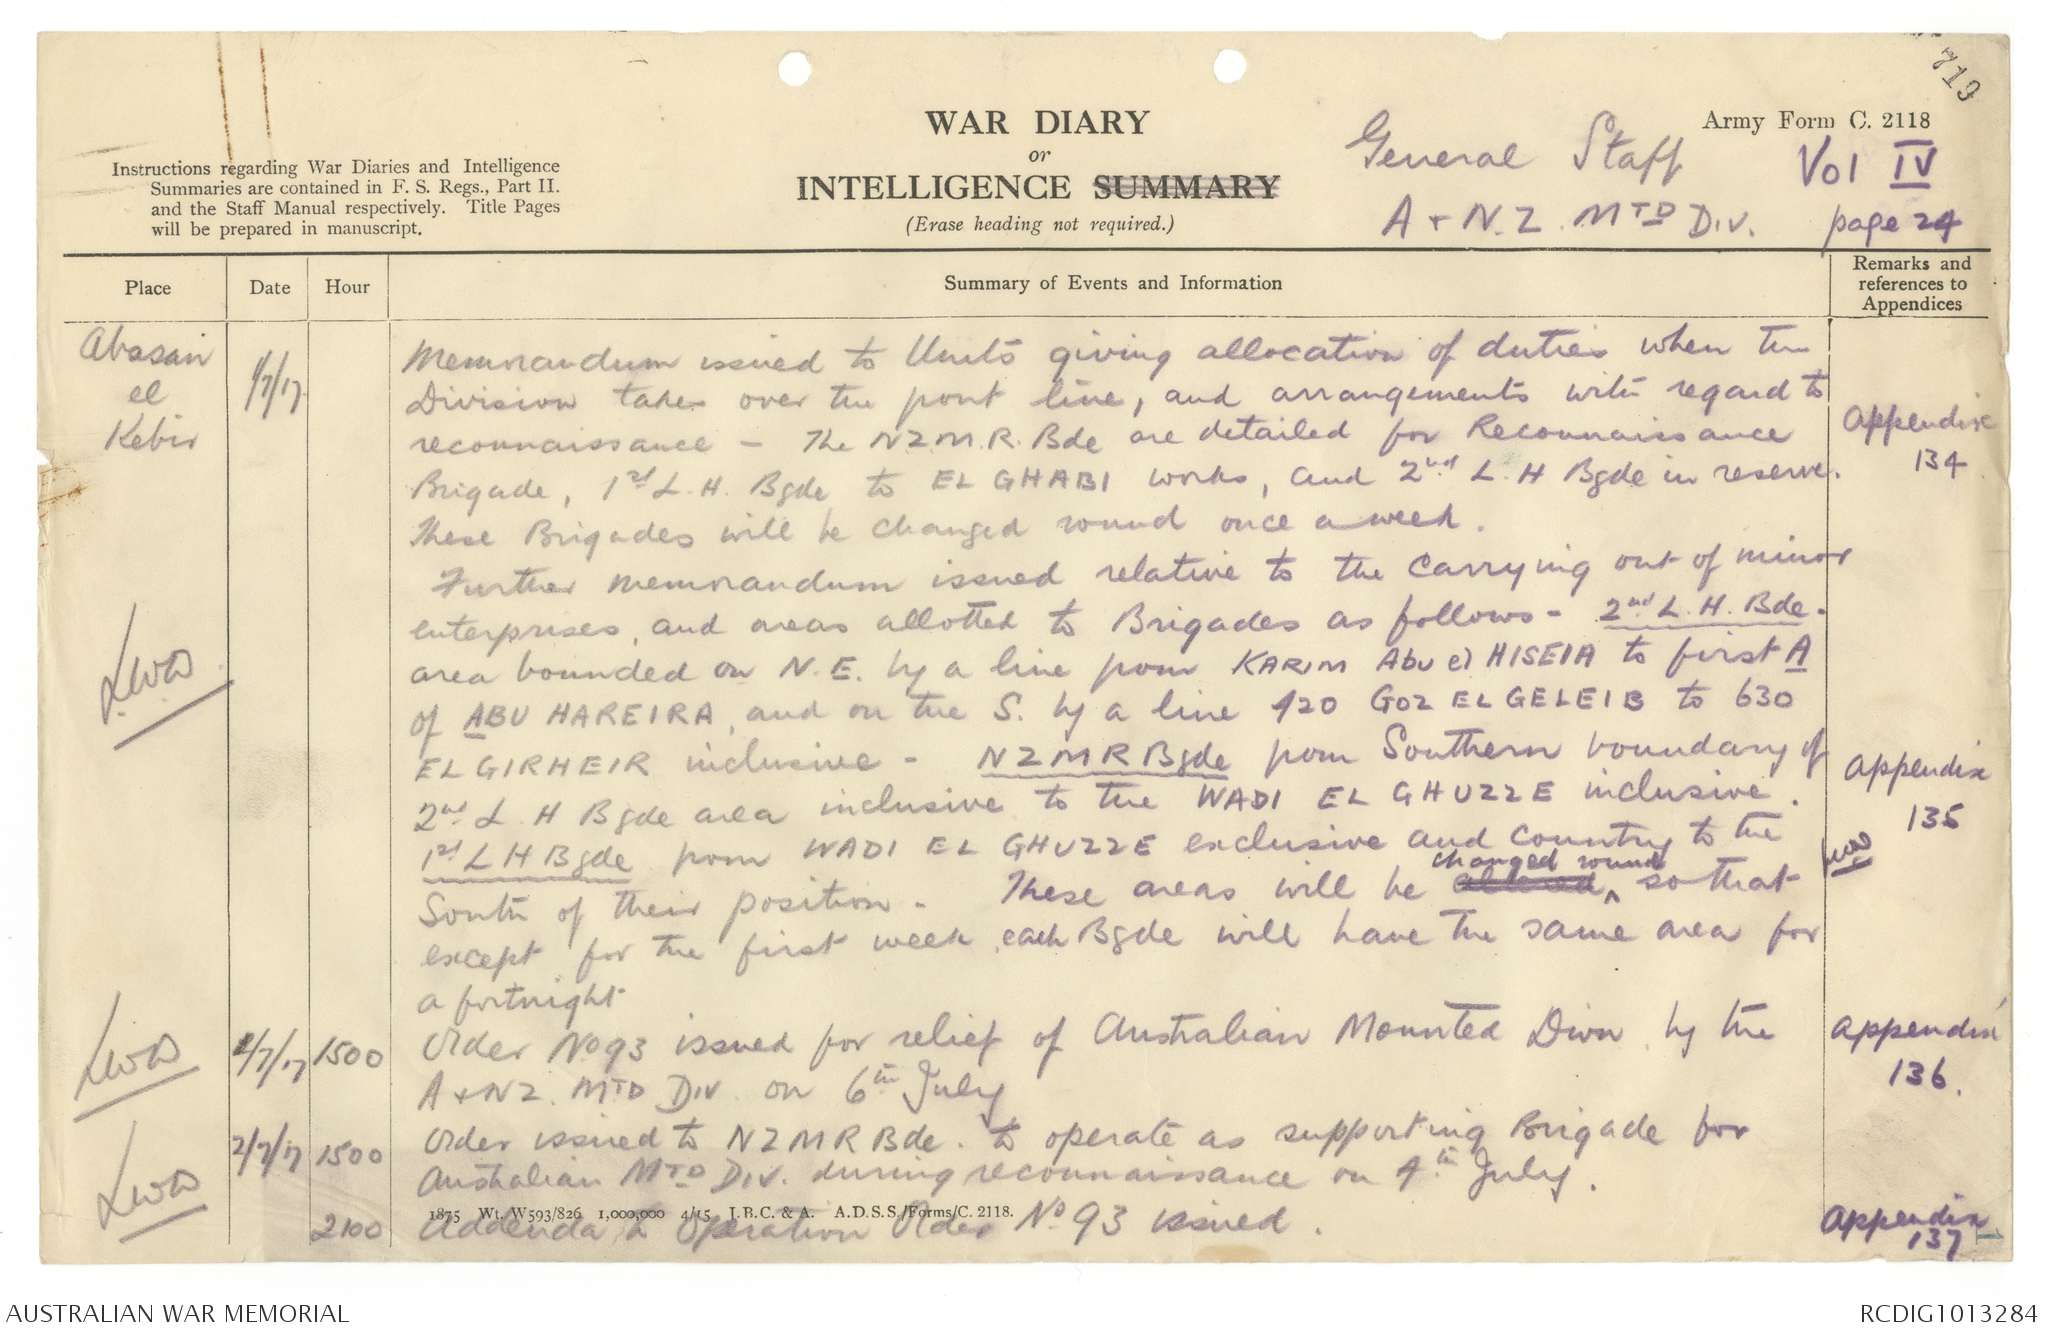 719
WAR DIARY
or
INTELLIGENCE SUMMARY
(Erase heading not required.)
Army Form C. 2118
Instructions regarding War Diaries and Intelligence
Summaries are contained in F. S. Regs., Part II.
and the Staff Manual respectively. Title Pages
will be prepared in manuscript.
General Staff
A + N.Z. MTD DIV.
Vol IV
page 24
Place Date Hour Summary of Events and Information
Remarks and
references to
Appendices
Abasan
el
Kebir
1/7/17
Memorandum issued to Units giving allocation of duties when the
Division takes over the front line, and arrangements with regard to
reconnaissance - The N Z M. R. Bde are detailed for Reconnaissance
Brigade, 1st L. H. Bgde to EL GHABI works, and 2nd L. H Bgde in reserve.
These Brigades will be changed round once a week.
Appendix
134
Further memorandum issued relative to the carrying out of minor
enterprises, and areas allotted to Brigades as follows - 2nd L. H. Bde -
area bounded on N. E. by a line from KARIM Abu el HISEIA to first A
of ABU HAREIRA, and on the S. by a line 420 GOZ EL GELEIB to 630
EL GIRHEIR inclusive - NZMR Bgde from Southern boundary of
2nd L H Bgde area inclusive to the WADI EL GHUZZE inclusive.
1st L H Bgde from WADI EL GHUZZE exclusive and Country to the
South of their position - These areas will be altered changed round so that
except for the first week each Bgde will have the same area for
a fortnight
LWD
Appendix
135
LWD
2/7/17 1500 Order No 93 issued for relief of Australian Mounted Divn by the
A + NZ. MTD DIV. on 6th July
LWD
Appendix
136.
2/7/17 1500 Order issued to NZMR Bde. to operate as supporting Brigade for
Australian MTD DIV. during reconnaissance on 4th July.
LWD
2100 Addenda to Operation Order No 93 issued.
Appendix
137
1875 Wt. W593/826 1,000,000 4/15 J.B.C. & A. A.D.S.S./Forms/C. 2118.
AUSTRALIAN WAR MEMORIAL
RCDIG1013284